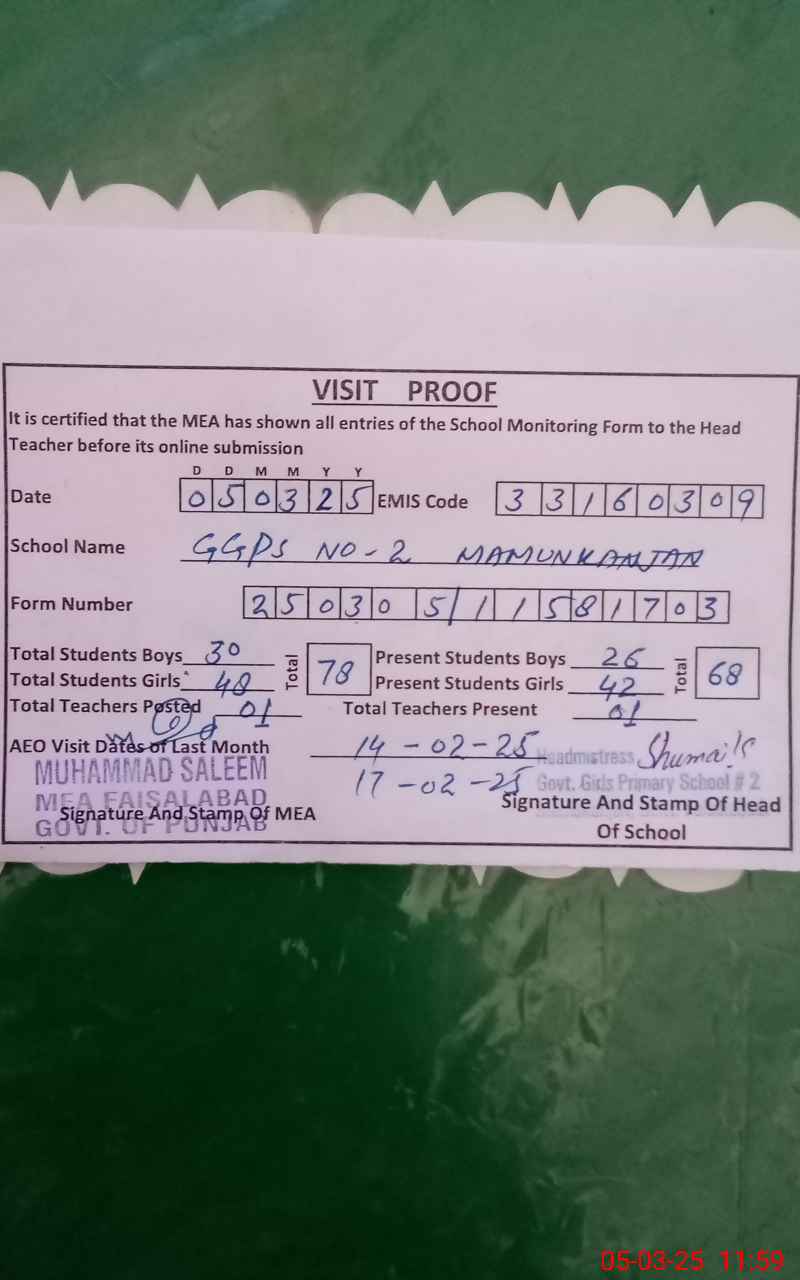 VISIT PROOF
It is certified that the MEA has shown all entries of the School Monitoring Form to the Head
Teacher before its online submission
D D M M Y Y
Date 050325 EMIS Code 33160309
School Name GGPS NO-2 MAMUNKANJAN
Form Number 25030 5/11581703
Total Students Boys 30 Total 78 Present Students Boys 26 Total 68
Total Students Girls 48 Present Students Girls 42
Total Teachers Posted 01 Total Teachers Present 01
AEO Visit Dates of Last Month 14-02-25 Headmistress
MUHAMMAD SALEEM 17-02-25 Govt. Girls Primary School # 2
MEA FAISALABAD
GOVT. OF PUNJAB
Signature And Stamp Of MEA
Signature And Stamp Of Head
Of School
05-03-25 11:59